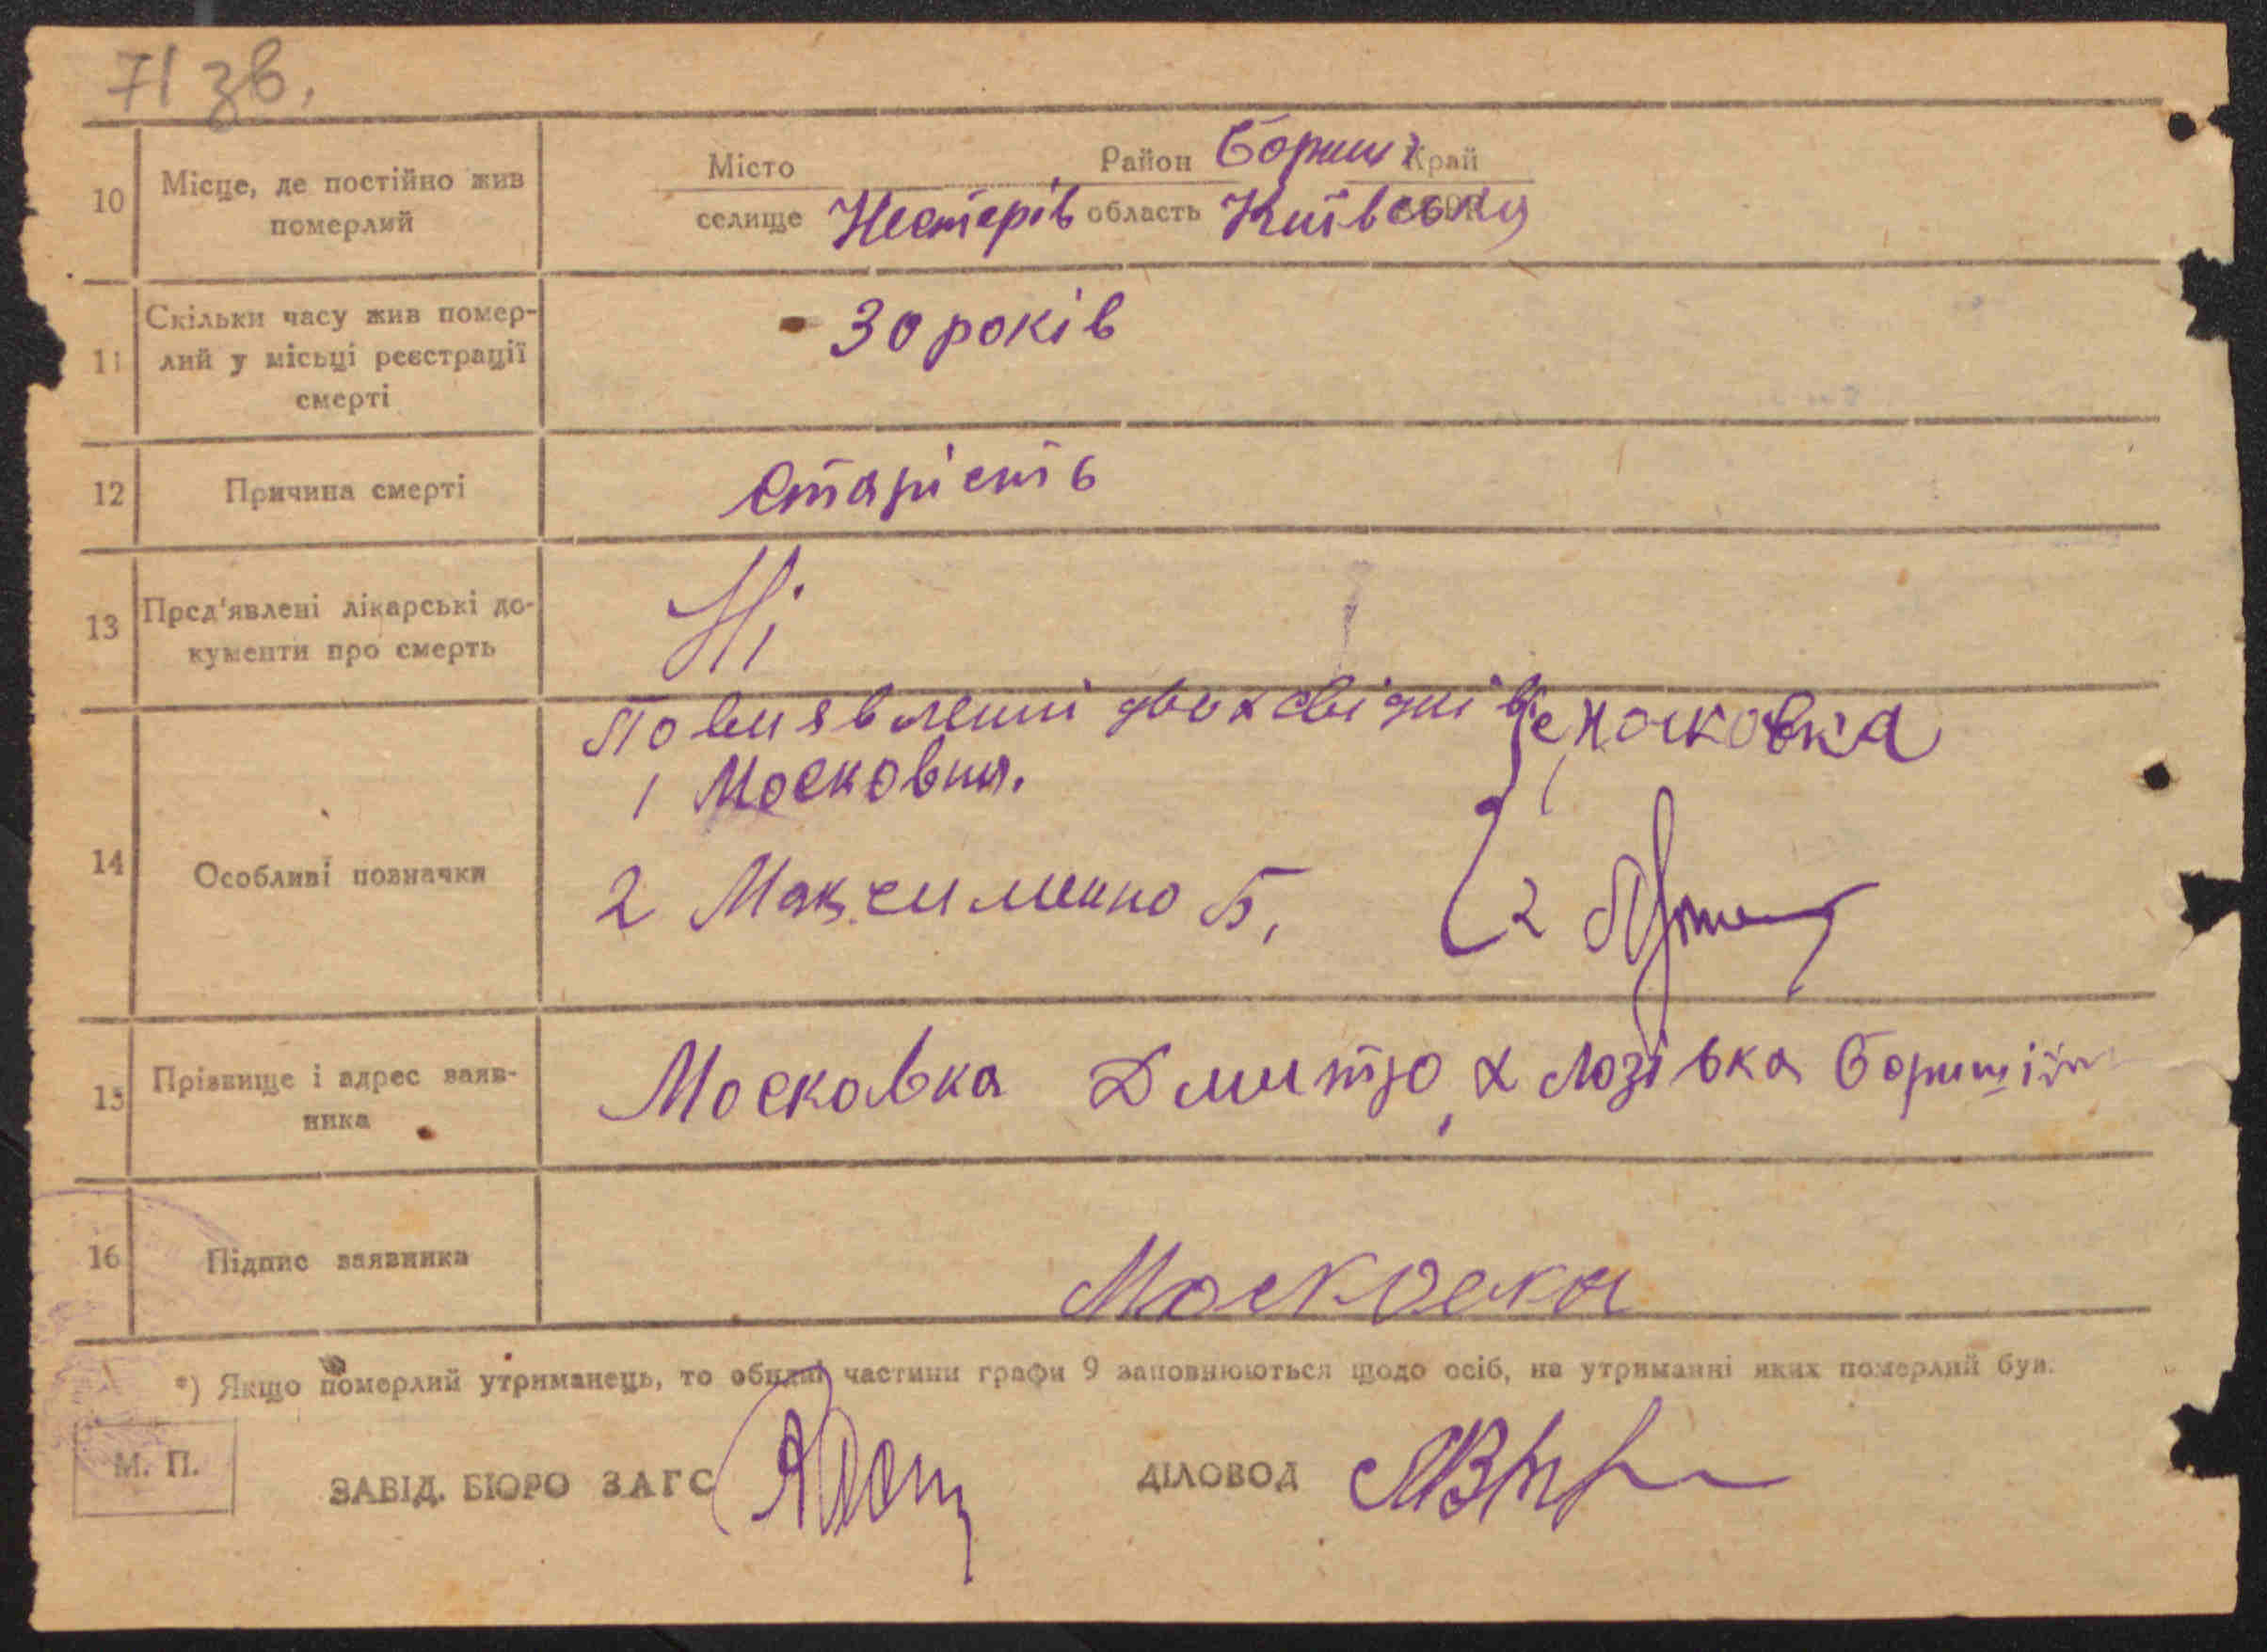 71 зв.
10 Місце, де постійно жив померлий
Місто Район Бориш Край
селище Нестерів область Київська
11 Скільки часу жив помер-
лий у місьці реєстрації
смерті
30 років
12 Причина смерті
старість
13 Пред'явлені лікарські до-
кументи про смерть
Ні
14 Особливі позначки
По виявленні двох свідків
1 Московка
1 Московка
2 Максименко Б.
2
15 Прізвище і адрес заяв-
ника
Московка Дмитро, х Лозівка
16 Підпис заявника
Московка
*) Якщо померлий утриманець, то обидві частини графи 9 заповнюються щодо осіб, на утриманні яких померлий був.
М. П.
ЗАВІД. БЮРО ЗАГС
ДІЛОВОД